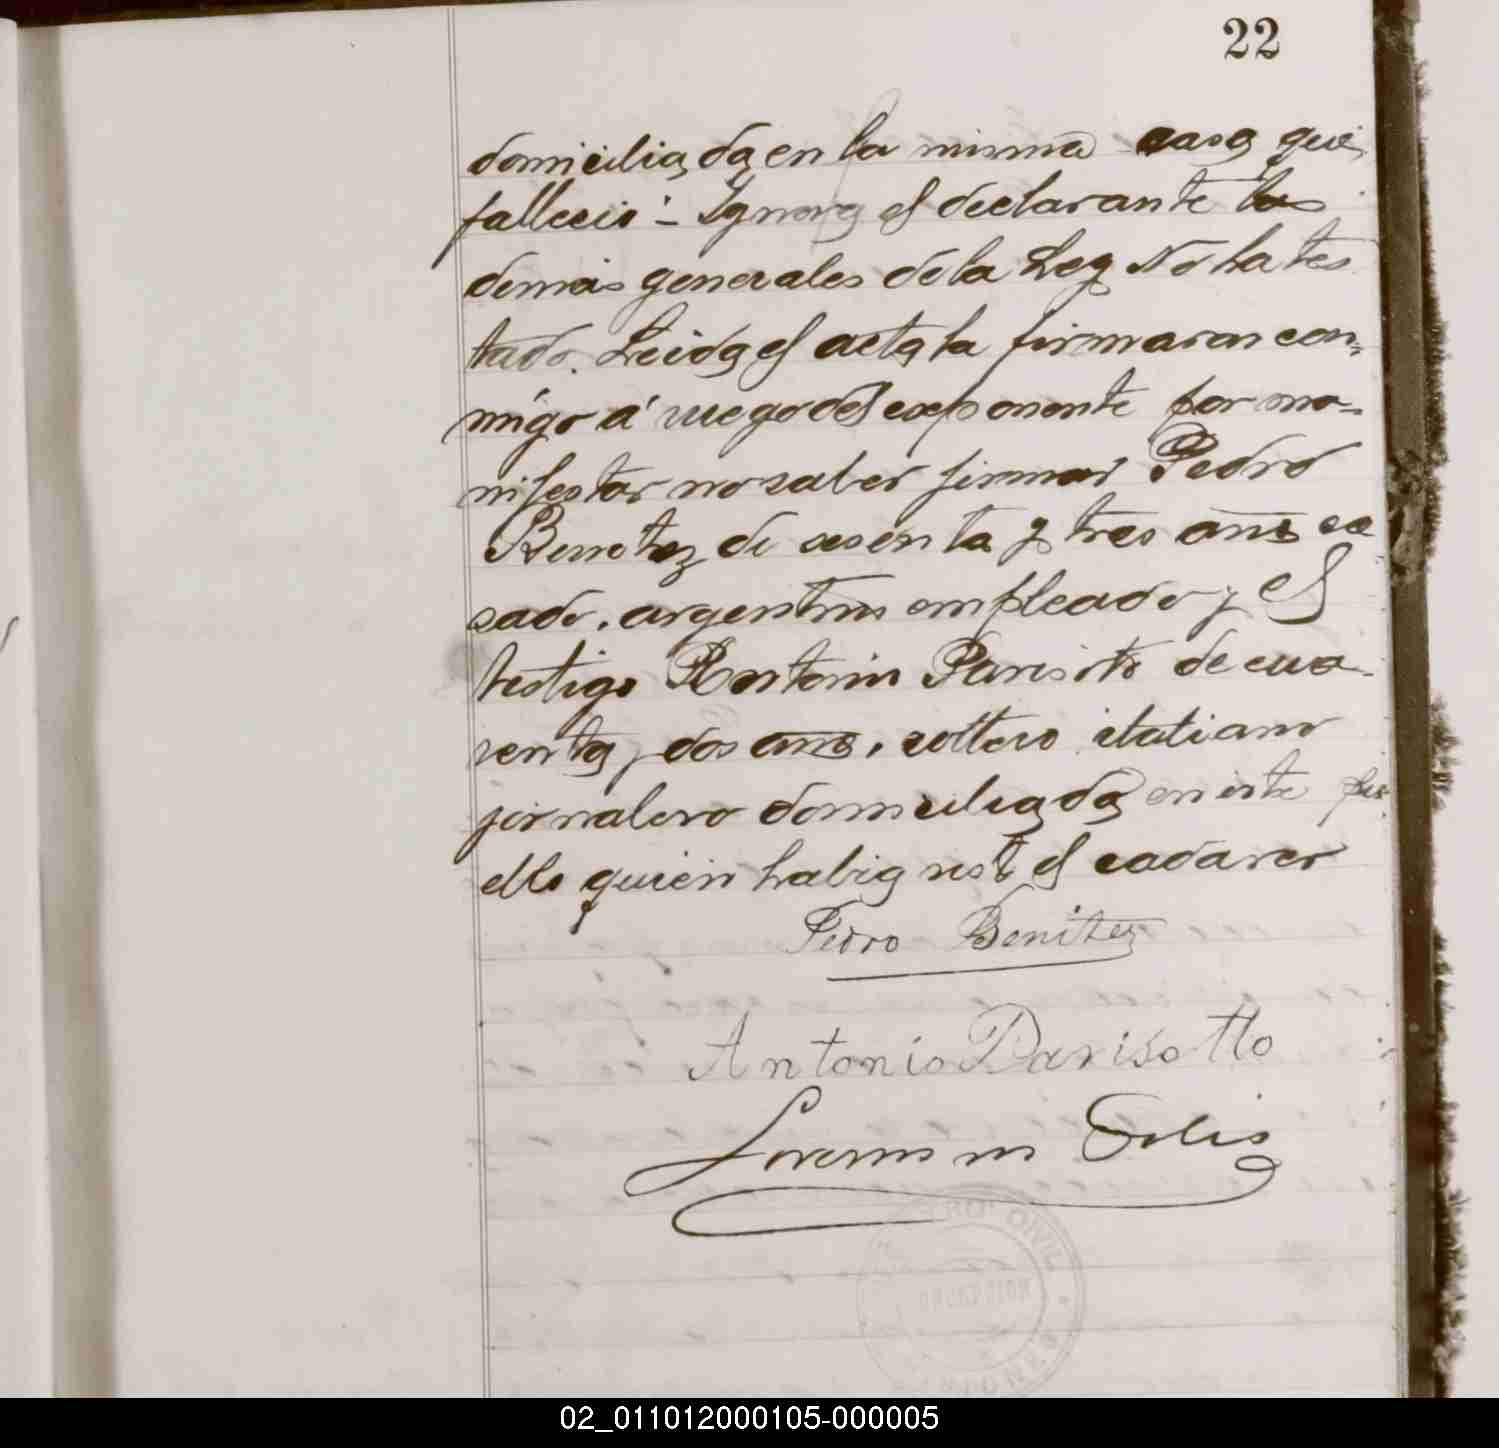 22
domiciliada en la misma casa que
falleció - Ygnora el declarante las
demás generales de la Ley No ha tes
tado. Leida el acta la firmaron con-
migo á ruego del exponente por ma-
nifestar no saber firmar Pedro
Benitez de sesenta y tres años ca-
sado, argentino empleado y el
testigo Antonio Parisoto de cua-
renta y dos años, soltero italiano
jornalero domiciliada en este pu-
eblo quien habia visto el cadaver
Pedro Benitez
Antonio Parisotto
Solis
CIVIL
02_011012000105-000005